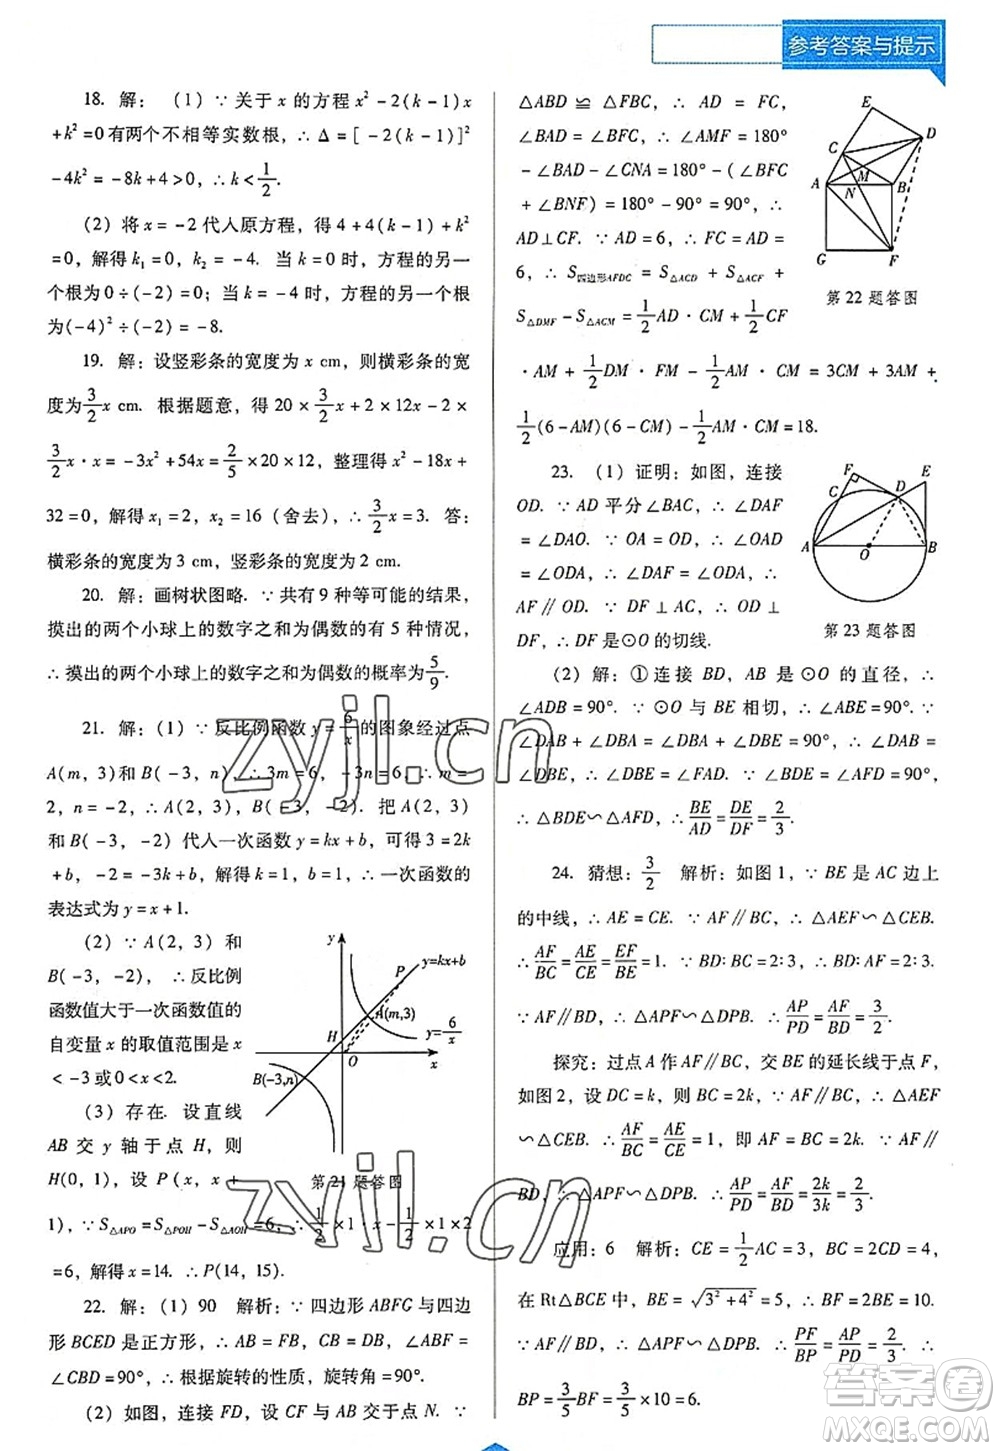 参考答案与提示
18. 解：(1) ∵ 关于 x 的方程 x²-2(k-1)x
+k²=0有两个不相等实数根，∴ Δ=[-2(k-1)]²
-4k²=-8k+4>0，∴ k<1/2.
(2) 将 x=-2 代人原方程，得 4+4(k-1)+k²
=0，解得 k₁=0，k₂=-4. 当 k=0时，方程的另一
个根为 0÷(-2)=0；当 k=-4时，方程的另一个根
为(-4)²÷(-2)=-8.
19. 解：设竖彩条的宽度为 x cm，则横彩条的宽
度为3/2x cm. 根据题意，得 20×3/2x+2×12x-2×
3/2x·x=-3x²+54x=2/5×20×12，整理得 x²-18x+
32=0，解得 x₁=2，x₂=16（舍去），∴ 3/2x=3. 答：
横彩条的宽度为 3 cm，竖彩条的宽度为 2 cm.
20. 解：画树状图略. ∵ 共有 9 种等可能的结果，
摸出的两个小球上的数字之和为偶数的有 5 种情况，
∴ 摸出的两个小球上的数字之和为偶数的概率为5/9.
21. 解：(1) ∵ 反比例函数 y=6/x的图象经过点
A(m，3)和 B(-3，n)，∴ 3m=6，-3n=6，∴ m=
2，n=-2，∴ A(2，3)，B(-3，-2). 把 A(2，3)
和 B(-3，-2) 代人一次函数 y=kx+b，可得 3=2k
+b，-2=-3k+b，解得 k=1，b=1，∴ 一次函数的
表达式为 y=x+1.
(2) ∵ A(2，3) 和
B(-3，-2)，∴ 反比例
函数值大于一次函数值的
自变量 x 的取值范围是 x
<-3或0<x<2.
(3) 存在. 设直线
AB 交 y 轴于点 H，则
H(0，1)，设 P(x，x+
1)，∵ S△APO=S△POH-S△AOH=6，∴ 1/2×1·x-1/2×1×2
=6，解得 x=14. ∴ P(14，15).
y
y=kx+b
P
A(m,3)
H
y=6/x
O
x
B(-3,n)
第21题答图
22. 解：(1) 90 解析：∵ 四边形 ABFG 与四边
形 BCED 是正方形，∴ AB=FB，CB=DB，∠ABF=
∠CBD=90°. 根据旋转的性质，旋转角=90°.
(2) 如图，连接 FD，设 CF 与 AB 交于点 N. ∵
△ABD ≌ △FBC，∴ AD = FC，
∠BAD=∠BFC，∴ ∠AMF=180°
-∠BAD-∠CNA=180°-(∠BFC
+∠BNF)=180°-90°=90°，∴
AD⊥CF. ∵ AD=6，∴ FC=AD=
6，∴ S四边形AFDC=S△ACD+S△ACF+
S△DMF-S△ACM=1/2AD·CM+1/2CF
·AM+1/2DM·FM-1/2AM·CM=3CM+3AM+
1/2(6-AM)(6-CM)-1/2AM·CM=18.
E
D
C
M
A
N
B
G
F
第22题答图
23. (1) 证明：如图，连接
OD. ∵ AD 平分∠BAC，∴ ∠DAF
=∠DAO. ∵ OA=OD，∴ ∠OAD
=∠ODA，∴ ∠DAF=∠ODA，∴
AF∥OD. ∵ DF⊥AC，∴ OD⊥
DF，∴ DF 是⊙O 的切线.
F
E
C
D
A
O
B
第23题答图
(2) 解：①连接 BD，AB 是⊙O 的直径，∴
∠ADB=90°. ∵ ⊙O 与 BE 相切，∴ ∠ABE=90°. ∵
∠DAB+∠DBA=∠DBA+∠DBE=90°，∴ ∠DAB=
∠DBE，∴ ∠DBE=∠FAD. ∵ ∠BDE=∠AFD=90°，
∴ △BDE∽△AFD，∴ BE/AD=DE/DF=2/3.
24. 猜想：3/2 解析：如图 1，∵ BE 是 AC 边上
的中线，∴ AE=CE. ∵ AF∥BC，∴ △AEF∽△CEB.
∴ AF/BC=AE/CE=EF/BE=1. ∵ BD∶BC=2∶3，∴ BD∶AF=2∶3.
∵ AF∥BC，∴ △APF∽△DPB. ∴ AP/PD=AF/BD=3/2.
探究：过点 A 作 AF∥BC，交 BE 的延长线于点 F，
如图 2，设 DC=k，则 BC=2k，∵ AF∥BC，∴ △AEF
∽△CEB. ∴ AF/BC=AE/CE=1，即 AF=BC=2k. ∵ AF∥
BD，∴ △APF∽△DPB. ∴ AP/PD=AF/BD=2k/3k=2/3.
应用：6 解析：CE=1/2AC=3，BC=2CD=4，
在 Rt△BCE 中，BE=√(3²+4²)=5，∴ BF=2BE=10.
∵ AF∥BD，∴ △APF∽△DPB，∴ PF/BP=AP/PD=2/3. ∴
BP=3/5BF=3/5×10=6.
zyjl.cn
zyjl.cn
答案圈
MXQE.COM